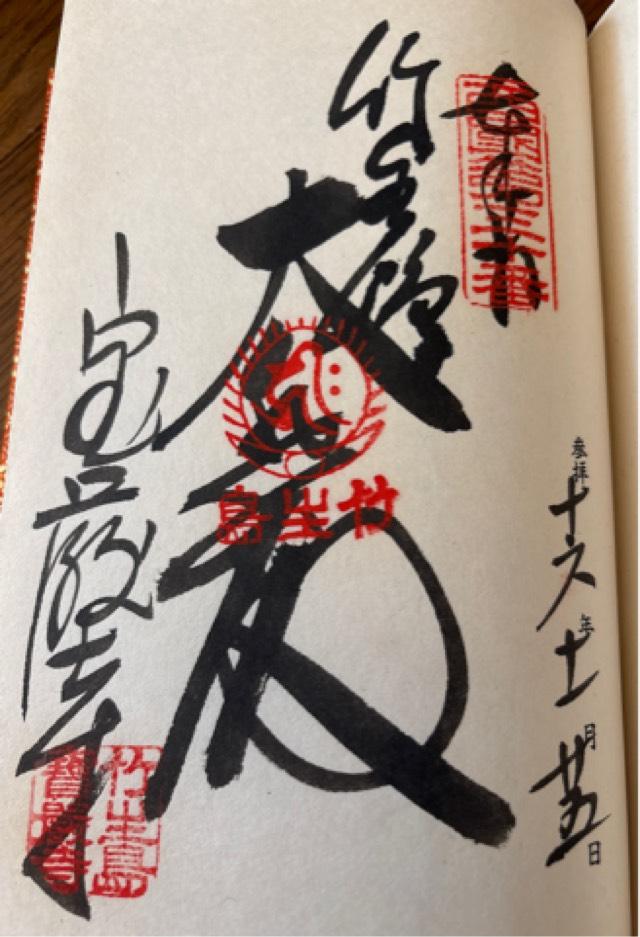 竹生嶋
大悲殿
竹生島
宝厳寺
竹生島
寶厳寺
参拝十六年十一月廿五日